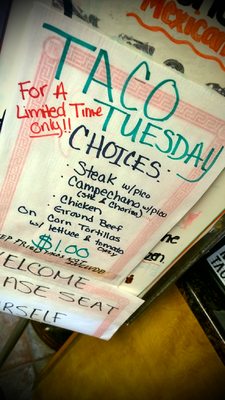 Mexican
TACO
TUESDAY
FOR A
Limited Time
ONLY!!
CHOICES:
• Steak w/pico
• Campechano w/pico
(Stk & Chorizo)
• Chicken
• Ground Beef
On Corn Tortillas
w/ lettuce & tomato
$1.00
WELCOME
PLEASE SEAT
YOURSELF